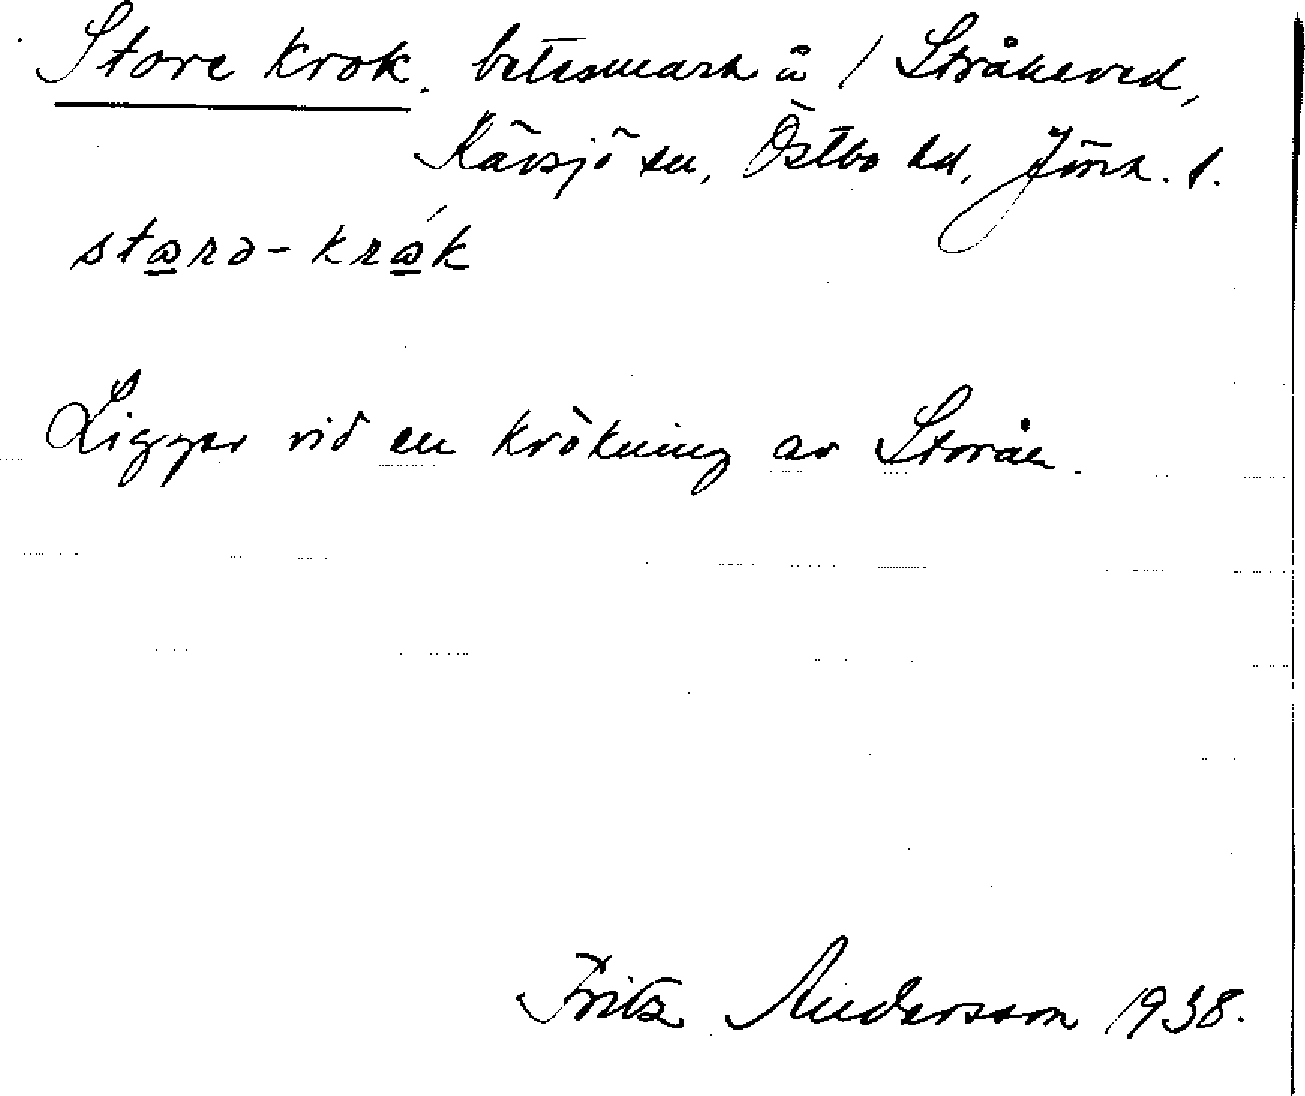 Store Krok, betesmark å 1 Stråkeved,
Kävsjö sn, Östbo hd, Jönk. l.
Ligger vid en krökning av Storån.
Fritz Andersson 1938.